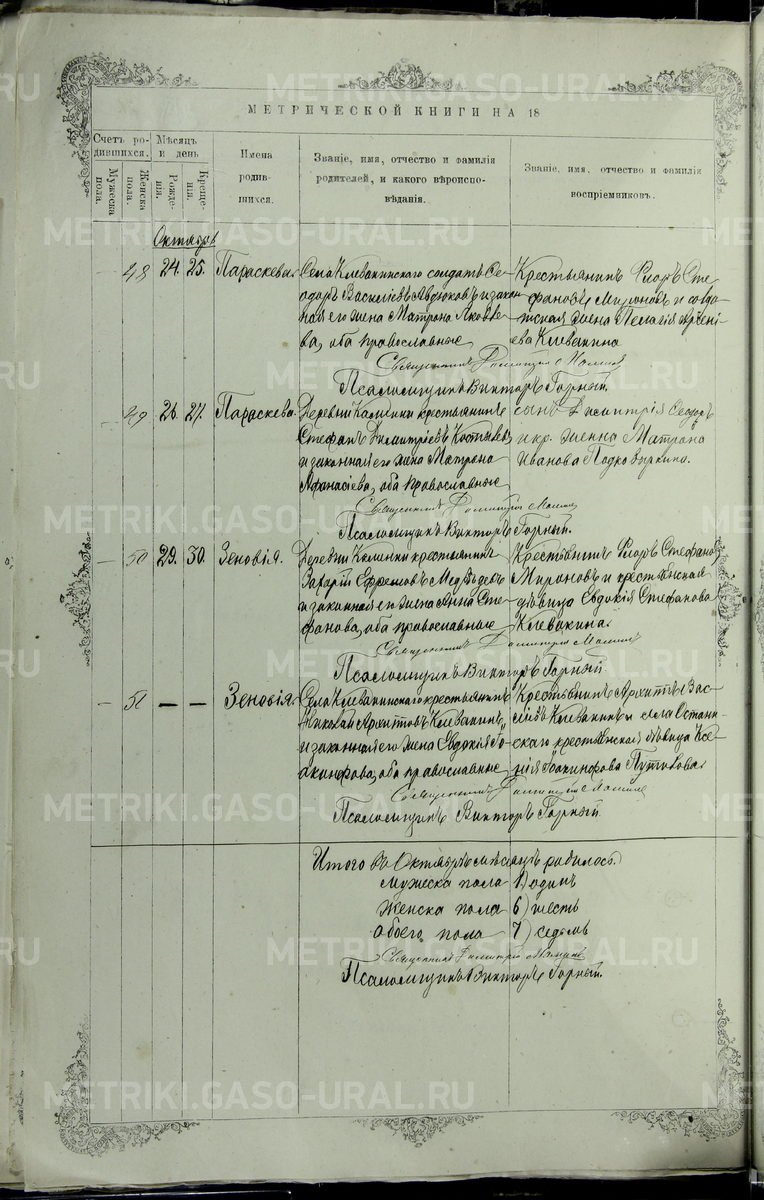 МЕТРИЧЕСКОЙ КНИГИ НА 18
Счетъ ро-
дившихся.
Мужеска
пола.
Женска
пола.
Мѣсяцъ
и день
Рожде-
нія.
Креще-
нія.
Имена
родив-
шихся.
Званіе, имя, отчество и фамилія
родителей, и какого вѣроиспо-
вѣданія.
Званіе, имя, отчество и фамилія
воспріемниковъ.
Октябрь
48 24. 25. Параскева.
Села Клевакинскаго солдатъ Ѳе-
одоръ Василіевъ Авдюковъ и закон
ная его жена Матрона Яковле-
ва, оба православные
Крестьянинъ Флоръ Сте-
фановъ Мироновъ и солда-
тская жена Пелагія Арсені-
ева Клевакина
Священникъ Димитрій
Псаломщикъ Викторъ Горный.
49 26. 27. Параскева.
Деревни Калинки крестьянинъ
Стефанъ Димитріевъ
и законная его жена Матрона
Афанасіева, оба православные
сынъ Димитрія Ѳеодоръ
и кр. женка Матрона
Иванова Подковыркина.
Священникъ Димитрій
Псаломщикъ Викторъ Горный.
50 29. 30. Зеновія.
Деревни Калинки крестьянинъ
Захарій Ефремовъ Медвѣдевъ
и законная его жена Анна Сте-
фанова, оба православные
Крестьянинъ Флоръ Стефановъ
Мироновъ и крестьянская
дѣвица Евдокія Стефанова
Клевакина.
Священникъ Димитрій
Псаломщикъ Викторъ Горный
51 — — Зеновія.
Села Клевакинскаго крестьянинъ
Николай Архиповъ Клевакинъ
и законная его жена Евдокія Іо-
акинфова, оба православные
Крестьянинъ Архипъ Вас-
ильевъ Клевакинъ и села Остани-
скаго крестьянская дѣвица Ксе-
нія Іоакинфова
Священникъ Димитрій
Псаломщикъ Викторъ Горный.
Итого въ Октябрѣ мѣсяцѣ родилось.
Мужеска пола 1) одинъ
Женска пола 6) шесть
Обоего пола 7) седьмь
Священникъ Димитрій
Псаломщикъ Викторъ Горный.
METRIKI.GASO-URAL.RU